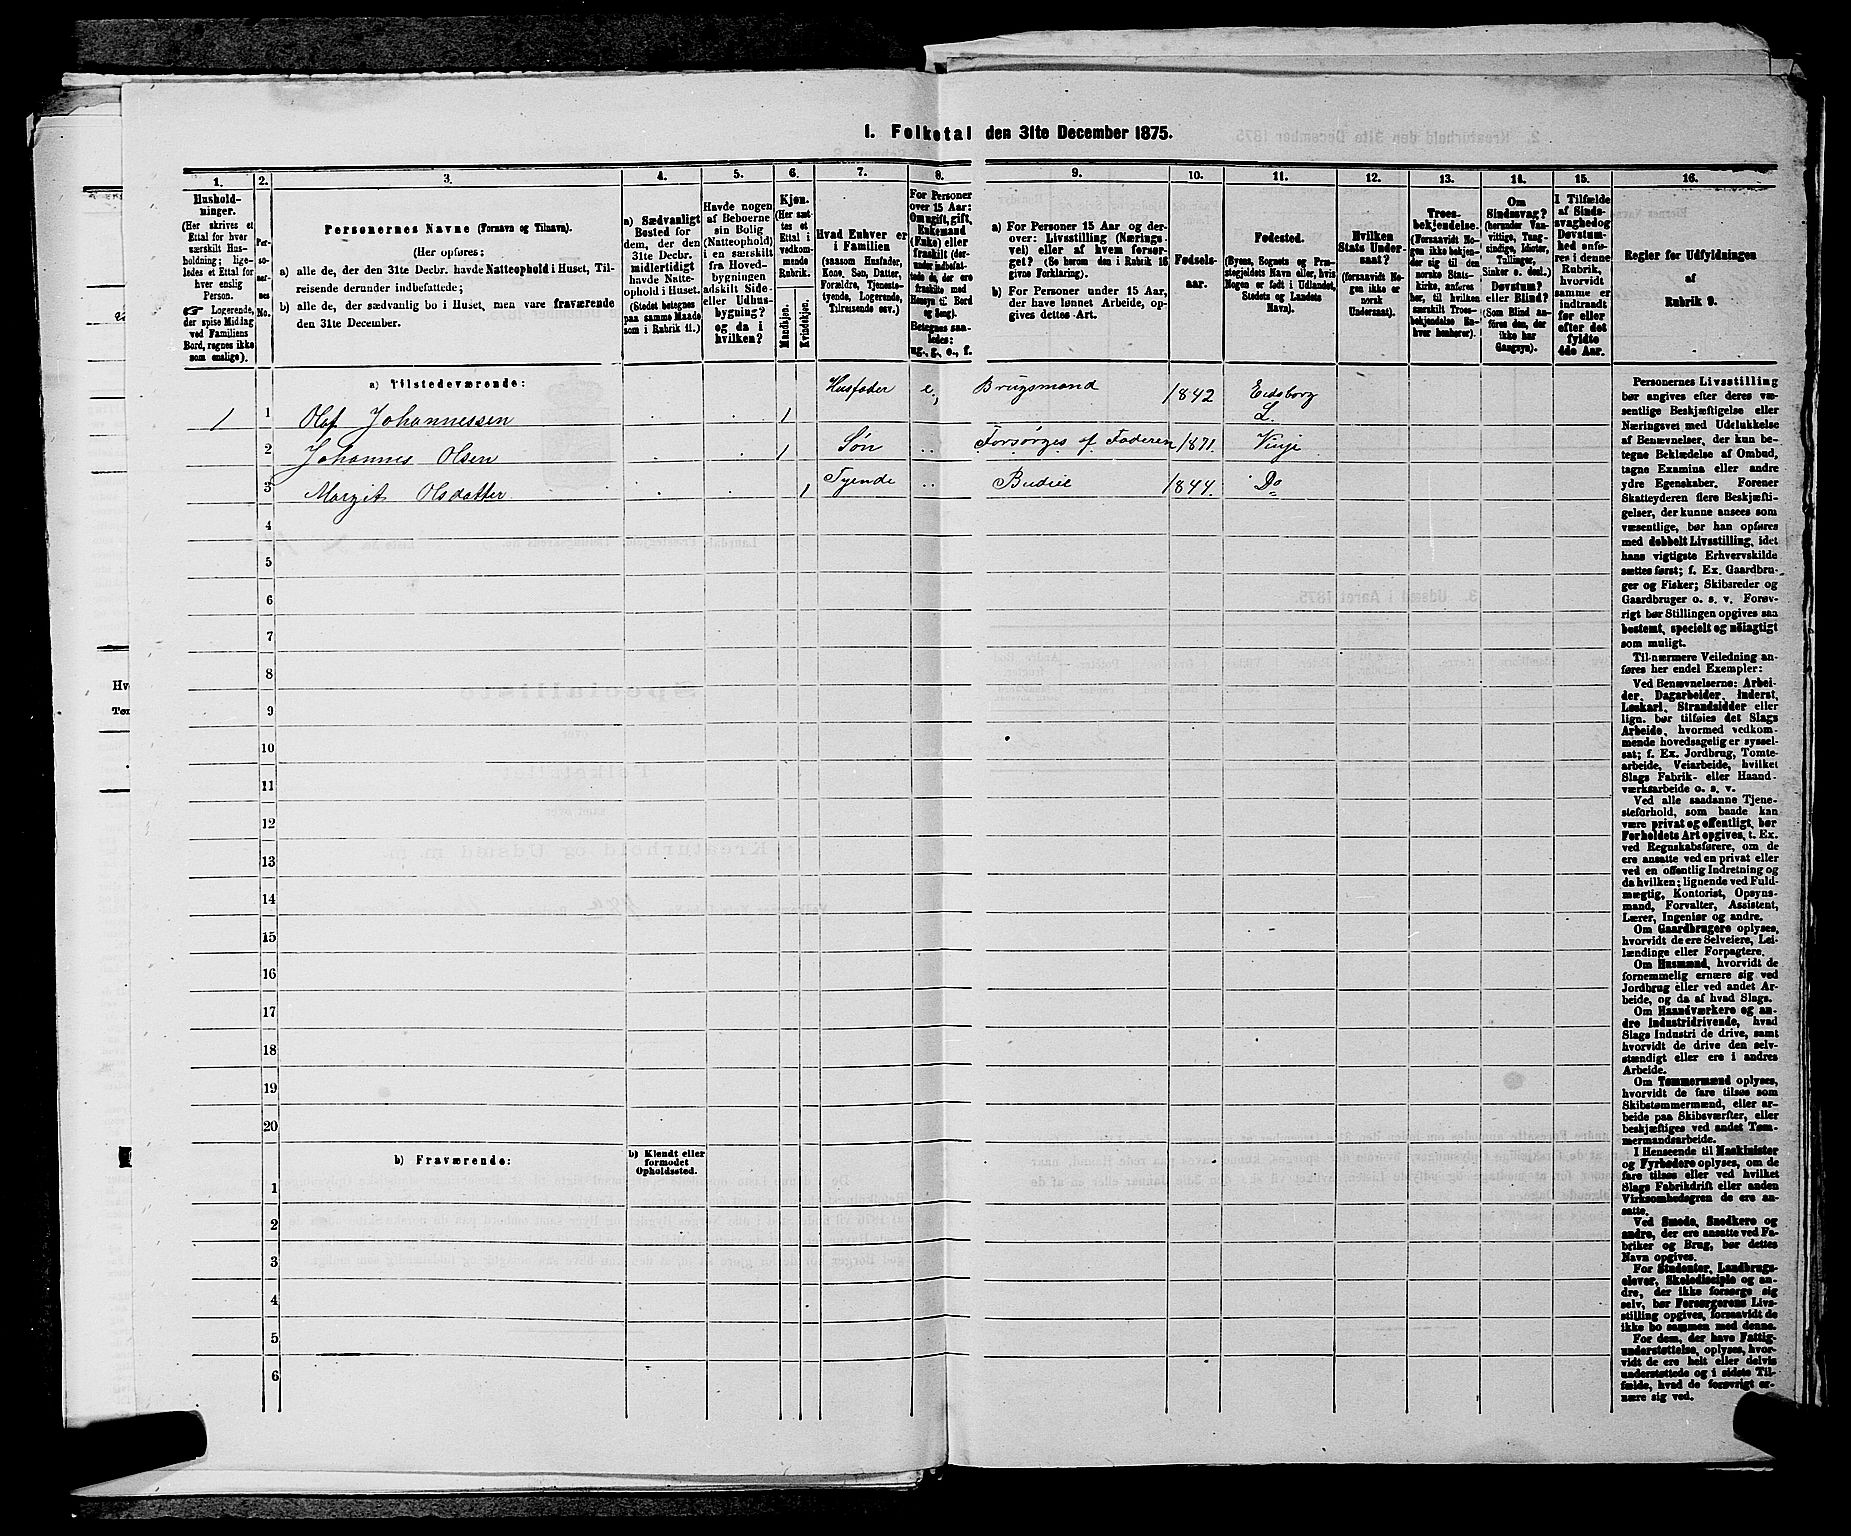 I. Folketal den 31te December 1875.
1. 2. 3. 4. 5. 6. 7. 8. 9. 10. 11. 12. 13. 14. 15. 16.
Hushold-
ninger.
(Her skrives et
Ettal for hver
særskilt Hus-
holdning; lige-
ledes et Ettal for
hver enslig
Person.
☞ Logerende,
der spise Middag
ved Familiens
Bord, regnes ikke
som enslige).
Per-
soner-
nes
No.
Personernes Navne (Fornavn og Tilnavn).
(Her opføres:
a) alle de, der den 31te Decbr. havde Natteophold i Huset, Til-
reisende derunder indbefattede;
b) alle de, der sædvanlig bo i Huset, men vare fraværende
den 31te December.
a) Sædvanligt
Bosted for
dem, der den
31te Decbr.
midlertidigt
havde Natte-
ophold i Huset.
(Stedet betegnes
paa samme Maade
som i Rubrik 11.)
Havde nogen
af Beboerne
sin Bolig
(Natteophold)
i en særskilt
fra Hoved-
bygningen
adskilt Side-
eller Udhus-
bygning?
og da i
hvilken?
Kjøn.
(Her sæt-
tes et
Ettal i
vedkom-
mende
Rubrik.
Mandkjøn.
Kvindekjøn.
Hvad Enhver er
i Familien
(saasom Husfader,
Kone, Søn, Datter,
Forældre, Tjeneste-
tyende, Logerende,
Tilreisende osv.)
For Personer
over 15 Aar:
Om ugift, gift,
Enkemand
(Enke) eller
fraskilt (der-
under indbefat-
tede de, der ere
fraskilte med
Hensyn til Bord
og Seng).
Betegnes saa-
ledes:
ug., g., e., f.
a) For Personer 15 Aar og der-
over: Livsstilling (Nærings-
vei) eller af hvem forsør-
get? (Se herom den i Rubrik 16
givne Forklaring).
b) For Personer under 15 Aar,
der have lønnet Arbeide, op-
gives dettes Art.
Fødsels-
aar.
Fødested.
(Byens, Sognets og Præ-
stegjeldets Navn eller, hvis
Nogen er født i Udlandet,
Stedets og Landets
Navn).
Hvilken
Stats Under-
saat?
(forsaavidt No-
gen ikke er
norsk
Undersaat).
Troes-
bekjendelse.
(Forsaavidt No-
gen ikke bekjen-
der sig til den
norske Stats-
kirke, anføres
her, til hvilken
særskilt Troes-
bekjendelse En-
hver henhører).
Om
Sindssvag?
(herunder Van-
vittige, Tung-
sindige, Idioter,
Tullinger,
Sinker o. desl.)
Døvstum?
eller Blind?
(Som Blind an-
føres den, der
ikke har
Gangsyn).
I Tilfælde
af Sinds-
svaghed og
Døvstum-
hed anfø-
res i denne
Rubrik,
hvorvidt
samme er
indtraadt
før eller
efter det
fyldte
4de Aar.
Regler for Udfyldningen
af
Rubrik 9.
a) Tilstedeværende:
1 1 Olaf Johannessen 1 Husfader e., Brugsmand 1842 Eidsborg L.
2 Johannes Olsen 1 Søn Forsørges af Faderen 1871. Vinje
3 Margit Olsdatter 1 Tyende Budeie 1844. Do
4
5
6
7
8
9
10
11
12
13
14
15
16
17
18
19
20
b) Fraværende:
b) Kjendt eller
formodet
Opholdssted.
1
2
3
4
5
6
Personernes Livsstilling
bør angives efter deres væ-
sentlige Beskjæftigelse eller
Næringsvei med Udelukkelse
af Benævnelser, der kun be-
tegne Beklædelse af Ombud,
tagne Examina eller andre
ydre Egenskaber. Forener
Skatteyderen flere Beskjæfti-
gelser, der kunne ansees som
væsentlige, bør han opføres
med dobbelt Livsstilling, idet
hans vigtigste Erhvervskilde
sættes først; f. Ex. Gaardbru-
ger og Fisker; Skibsreder og
Gaardbruger o. s. v. Forøv-
rigt bør Stillingen opgives saa
bestemt, specielt og nøiagtigt
som muligt.
Til nærmere Veiledning an-
føres her endel Exempler:
Ved Benævnelserne: Arbei-
der, Dagarbeider, Inderst,
Løskarl, Strandsidder eller
lign. bør tilføies det Slags
Arbeide, hvormed vedkom-
mende hovedsagelig er syssel-
sat; f. Ex. Jordbrug, Tomte-
arbeide, Veiarbeide, hvilket
Slags Fabrik- eller Haand-
værksarbeide o. s. v.
Ved alle saadanne Tjene-
steforhold, som baade kan
være privat og offentligt, bør
Forholdets Art opgives, t. Ex.
ved Regnskabsførere, om de
ere ansatte ved en privat eller
ved en offentlig Indretning og
da hvilken; lignende ved Fuld-
mægtig, Kontorist, Opsyns-
mand, Forvalter, Assistent,
Lærer, Ingeniør og andre.
Om Gaardbrugere oplyses,
hvorvidt de ere Selveiere, Lei-
lændinge eller Forpagtere.
Om Husmænd, hvorvidt de
fornemmelig ernære sig ved
Jordbrug eller ved andet Ar-
beide, og da af hvad Slags.
Om Haandværkere og an-
dre Industridrivende, hvad
Slags Industri de drive, samt
hvorvidt de drive den selv-
stændigt eller ere i andres
Arbeide.
Om Tømmermænd oplyses,
hvorvidt de fare tilsøs som
Skibstømmermænd, eller ar-
beide paa Skibsværfter, eller
beskjæftiges ved andet Tøm-
mermandsarbeide.
I Henseende til Maskinister
og Fyrbødere oplyses, om de
fare tilsøs eller ved hvilket
Slags Fabrikdrift eller anden
Virksomhedsgren de ere an-
satte.
Ved Smede, Snedkere og
andre, der ere ansatte ved Fa-
briker og Brug, bør dettes
Navn opgives.
For Studenter, Landbrugs-
elever, Skoledisciple og an-
dre, der ikke forsørge sig
selv, bør Forsørgerens Livs-
stilling opgives, forsaavidt de
ikke bo sammen med denne.
For dem, der have Fattig-
understøttelse, oplyses, hvor-
vidt de ere helt eller delvis
understøttede og i sidste Til-
fælde, hvad de forøvrigt er-
nære sig ved.